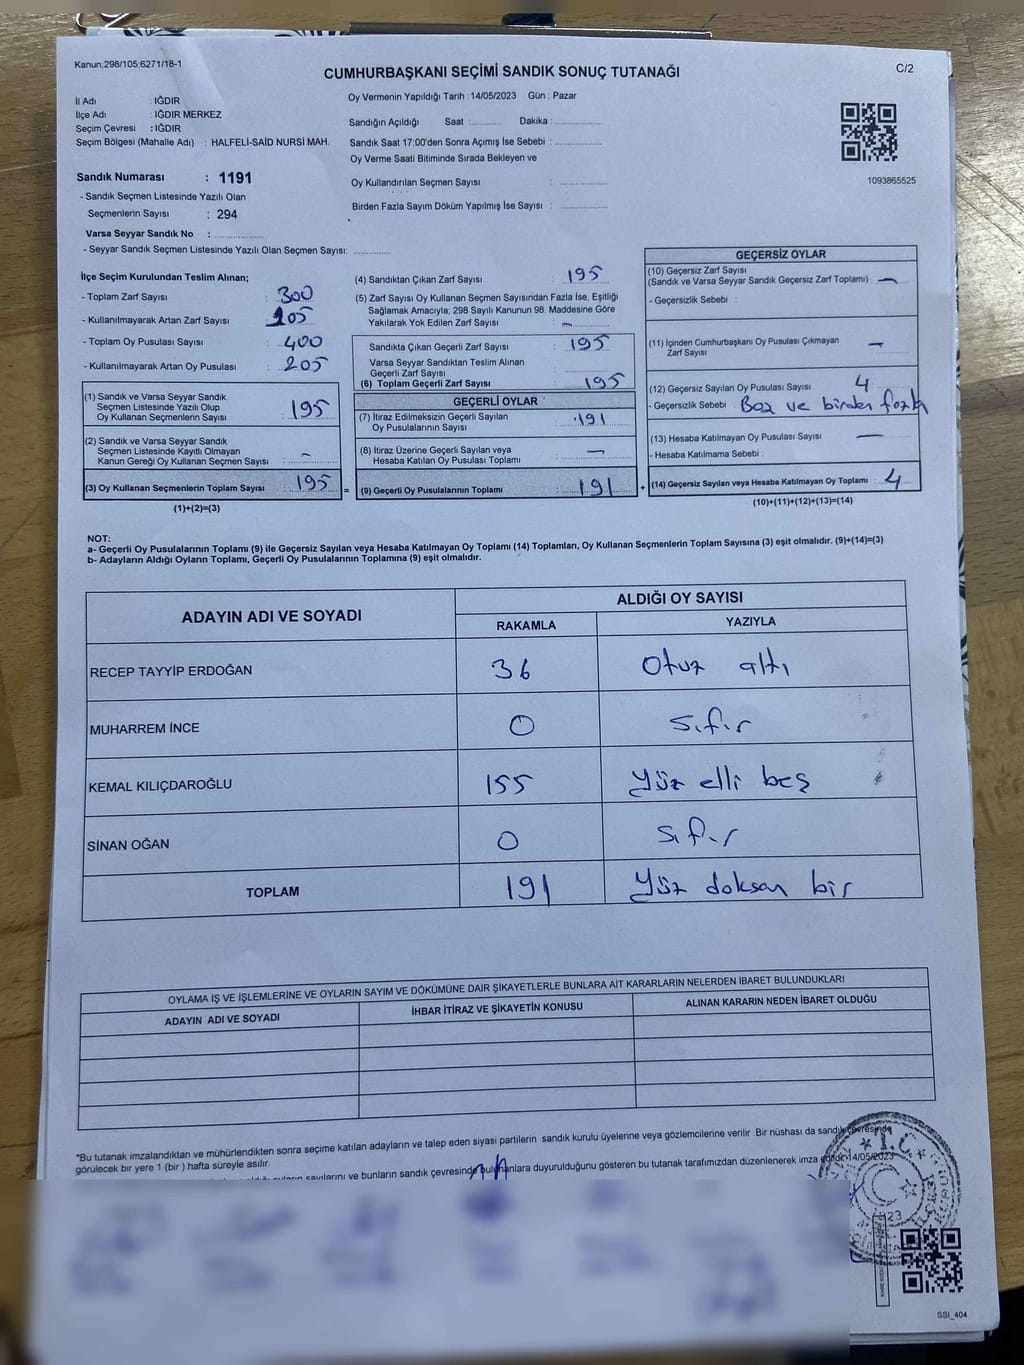 Kanun:298/105;6271/18-1
CUMHURBAŞKANI SEÇİMİ SANDIK SONUÇ TUTANAĞI
C/2
İl Adı : IĞDIR
İlçe Adı : IĞDIR MERKEZ
Seçim Çevresi : IĞDIR
Seçim Bölgesi (Mahalle Adı) : HALFELİ-SAİD NURSİ MAH.
Sandık Numarası : 1191
- Sandık Seçmen Listesinde Yazılı Olan
Seçmenlerin Sayısı : 294
Varsa Seyyar Sandık No :
- Seyyar Sandık Seçmen Listesinde Yazılı Olan Seçmen Sayısı:
Oy Vermenin Yapıldığı Tarih : 14/05/2023 Gün : Pazar
Sandığın Açıldığı Saat : Dakika :
Sandık Saat 17:00'den Sonra Açımış İse Sebebi :
Oy Verme Saati Bitiminde Sırada Bekleyen ve
Oy Kullandırılan Seçmen Sayısı :
Birden Fazla Sayım Döküm Yapılmış İse Sayısı :
1093865525
İlçe Seçim Kurulundan Teslim Alınan;
- Toplam Zarf Sayısı : 300
- Kullanılmayarak Artan Zarf Sayısı : 105
- Toplam Oy Pusulası Sayısı : 400
- Kullanılmayarak Artan Oy Pusulası : 205
(1) Sandık ve Varsa Seyyar Sandık
Seçmen Listesinde Yazılı Olup
Oy Kullanan Seçmenlerin Sayısı : 195
(2) Sandık ve Varsa Seyyar Sandık
Seçmen Listesinde Kayıtlı Olmayan
Kanun Gereği Oy Kullanan Seçmen Sayısı : -
(3) Oy Kullanan Seçmenlerin Toplam Sayısı : 195 =
(1)+(2)=(3)
(4) Sandıktan Çıkan Zarf Sayısı : 195
(5) Zarf Sayısı Oy Kullanan Seçmen Sayısından Fazla İse, Eşitliği
Sağlamak Amacıyla; 298 Sayılı Kanunun 98. Maddesine Göre
Yakılarak Yok Edilen Zarf Sayısı : -
Sandıkta Çıkan Geçerli Zarf Sayısı : 195
Varsa Seyyar Sandıktan Teslim Alınan
Geçerli Zarf Sayısı :
(6) Toplam Geçerli Zarf Sayısı : 195
GEÇERLİ OYLAR
(7) İtiraz Edilmeksizin Geçerli Sayılan
Oy Pusulalarının Sayısı : 191
(8) İtiraz Üzerine Geçerli Sayılan veya
Hesaba Katılan Oy Pusulası Toplamı : -
(9) Geçerli Oy Pusulalarının Toplamı : 191 +
GEÇERSİZ OYLAR
(10) Geçersiz Zarf Sayısı
(Sandık ve Varsa Seyyar Sandık Geçersiz Zarf Toplamı) : -
- Geçersizlik Sebebi :
(11) İçinden Cumhurbaşkanı Oy Pusulası Çıkmayan
Zarf Sayısı : -
(12) Geçersiz Sayılan Oy Pusulası Sayısı : 4
- Geçersizlik Sebebi : Boz ve birden fazla
(13) Hesaba Katılmayan Oy Pusulası Sayısı : -
- Hesaba Katılmama Sebebi :
(14) Geçersiz Sayılan veya Hesaba Katılmayan Oy Toplamı : 4
(10)+(11)+(12)+(13)=(14)
NOT:
a- Geçerli Oy Pusulalarının Toplamı (9) ile Geçersiz Sayılan veya Hesaba Katılmayan Oy Toplamı (14) Toplamları, Oy Kullanan Seçmenlerin Toplam Sayısına (3) eşit olmalıdır. (9)+(14)=(3)
b- Adayların Aldığı Oyların Toplamı, Geçerli Oy Pusulalarının Toplamına (9) eşit olmalıdır.
ADAYIN ADI VE SOYADI
ALDIĞI OY SAYISI
RAKAMLA YAZIYLA
RECEP TAYYİP ERDOĞAN 36 Otuz altı
MUHARREM İNCE 0 Sıfır
KEMAL KILIÇDAROĞLU 155 Yüz elli beş
SİNAN OĞAN 0 Sıfır
TOPLAM 191 Yüz doksan bir
OYLAMA İŞ VE İŞLEMLERİNE VE OYLARIN SAYIM VE DÖKÜMÜNE DAİR ŞİKAYETLERLE BUNLARA AİT KARARLARIN NELERDEN İBARET BULUNDUKLARI
ADAYIN ADI VE SOYADI İHBAR İTİRAZ VE ŞİKAYETİN KONUSU ALINAN KARARIN NEDEN İBARET OLDUĞU
*Bu tutanak imzalandıktan ve mühürlendikten sonra seçime katılan adayların ve talep eden siyasi partilerin sandık kurulu üyelerine veya gözlemcilerine verilir. Bir nüshası da sandık çevresinde
görülecek bir yere 1 (bir ) hafta süreyle asılır.
sayılarını ve bunların sandık çevresinde bulunanlara duyurulduğunu gösteren bu tutanak tarafımızdan düzenlenerek imza edildi. 14/05/2023
T.C.
SSI_404